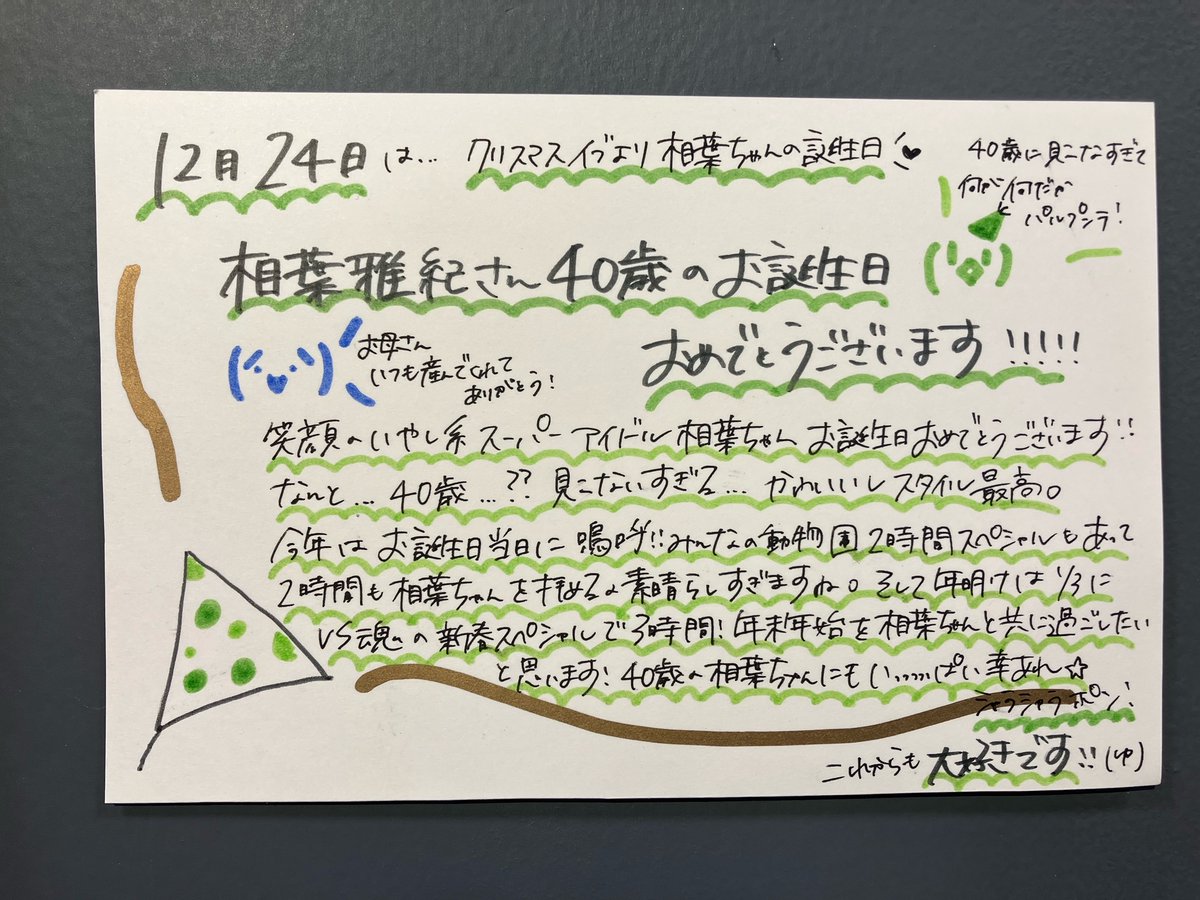 12月24日は… クリスマスイブより相葉ちゃんの誕生日
40歳に見こなすぎて
何が何だか
パルプンテ!
相葉雅紀さん40歳のお誕生日
おめでとうございます!!!!!
お母さん
いつも産んでくれて
ありがとう!
笑顔のいやし系スーパーアイドル相葉ちゃんお誕生日おめでとうございます!!
なんと…40歳…?? 見こないすぎる…かわいいしスタイル最高。
今年はお誕生日当日に嗚呼!!みんなの動物園2時間スペシャルもあって
2時間も相葉ちゃんを拝めるの素晴らしすぎますね。そして年明けは1/3に
VS魂の新春スペシャルで3時間!年末年始を相葉ちゃんと共に過ごしたい
と思います!40歳の相葉ちゃんにもいっっっぱい幸あれ☆
シャラシャラポン!
これからも大好きです!!(ゆ)